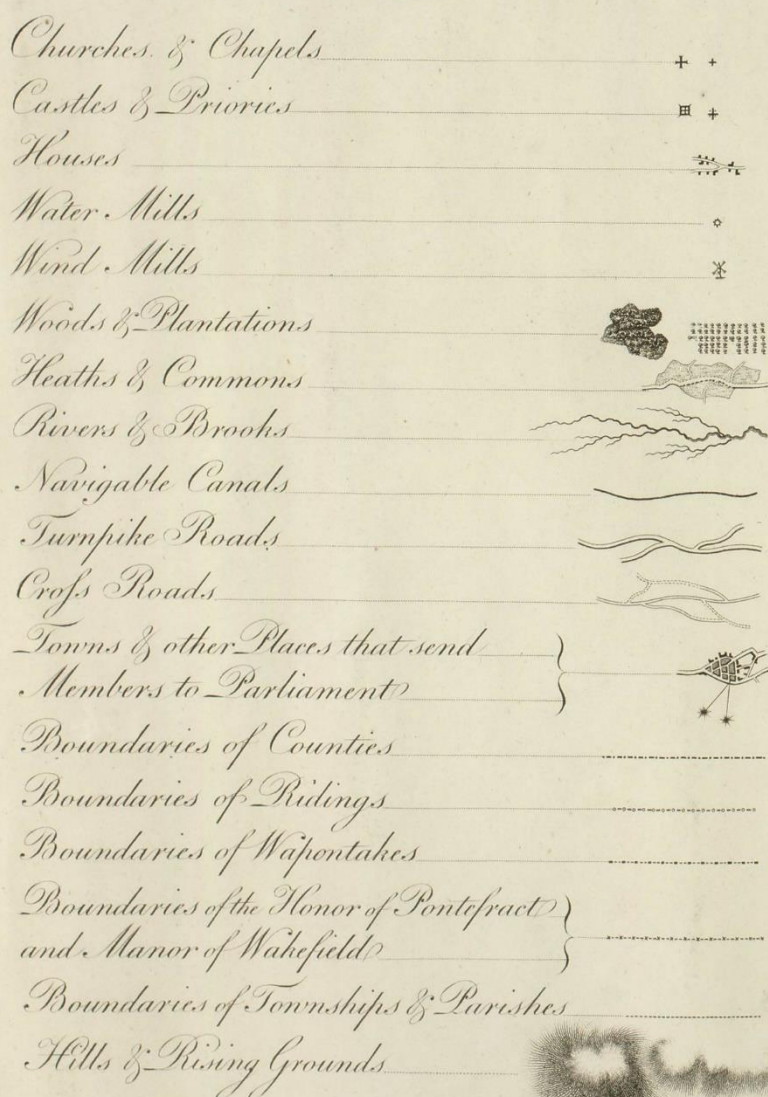 Churches. & Chapels
Castles & Priories
Houses
Water Mills
Wind Mills
Woods & Plantations
Heaths & Commons
Rivers & Brooks
Navigable Canals
Turnpike Roads
Croſs Roads
Towns & other Places that send
Members to Parliament
Boundaries of Counties
Boundaries of Ridings
Boundaries of Wapontakes
Boundaries of the Honor of Pontefract
and Manor of Wakefield
Boundaries of Townships & Parishes
Hills & Rising Grounds